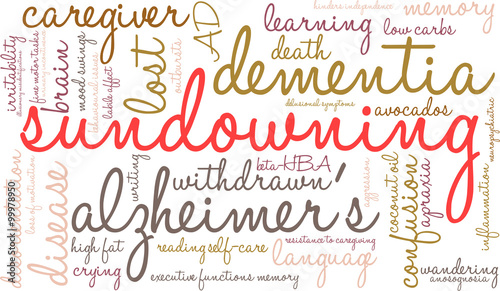 caregiver
AD
learning
hinders independence
memory
low carbs
irritability
fine motor tasks
brain
mood swings
behavioural issues
labile affect
lost
outbursts
death
dementia
delusional symptoms
avocados
neuropsychiatric
sundowning
disease
loss of motivation
writing
beta-HBA
withdrawn
alzheimer's
aggression
coconut oil
confusion
apraxia
inflammation
high fat
reading
self-care
resistance to caregiving
language
crying
executive functions
memory
wandering
anosognosia
Adobe Stock | #99978950